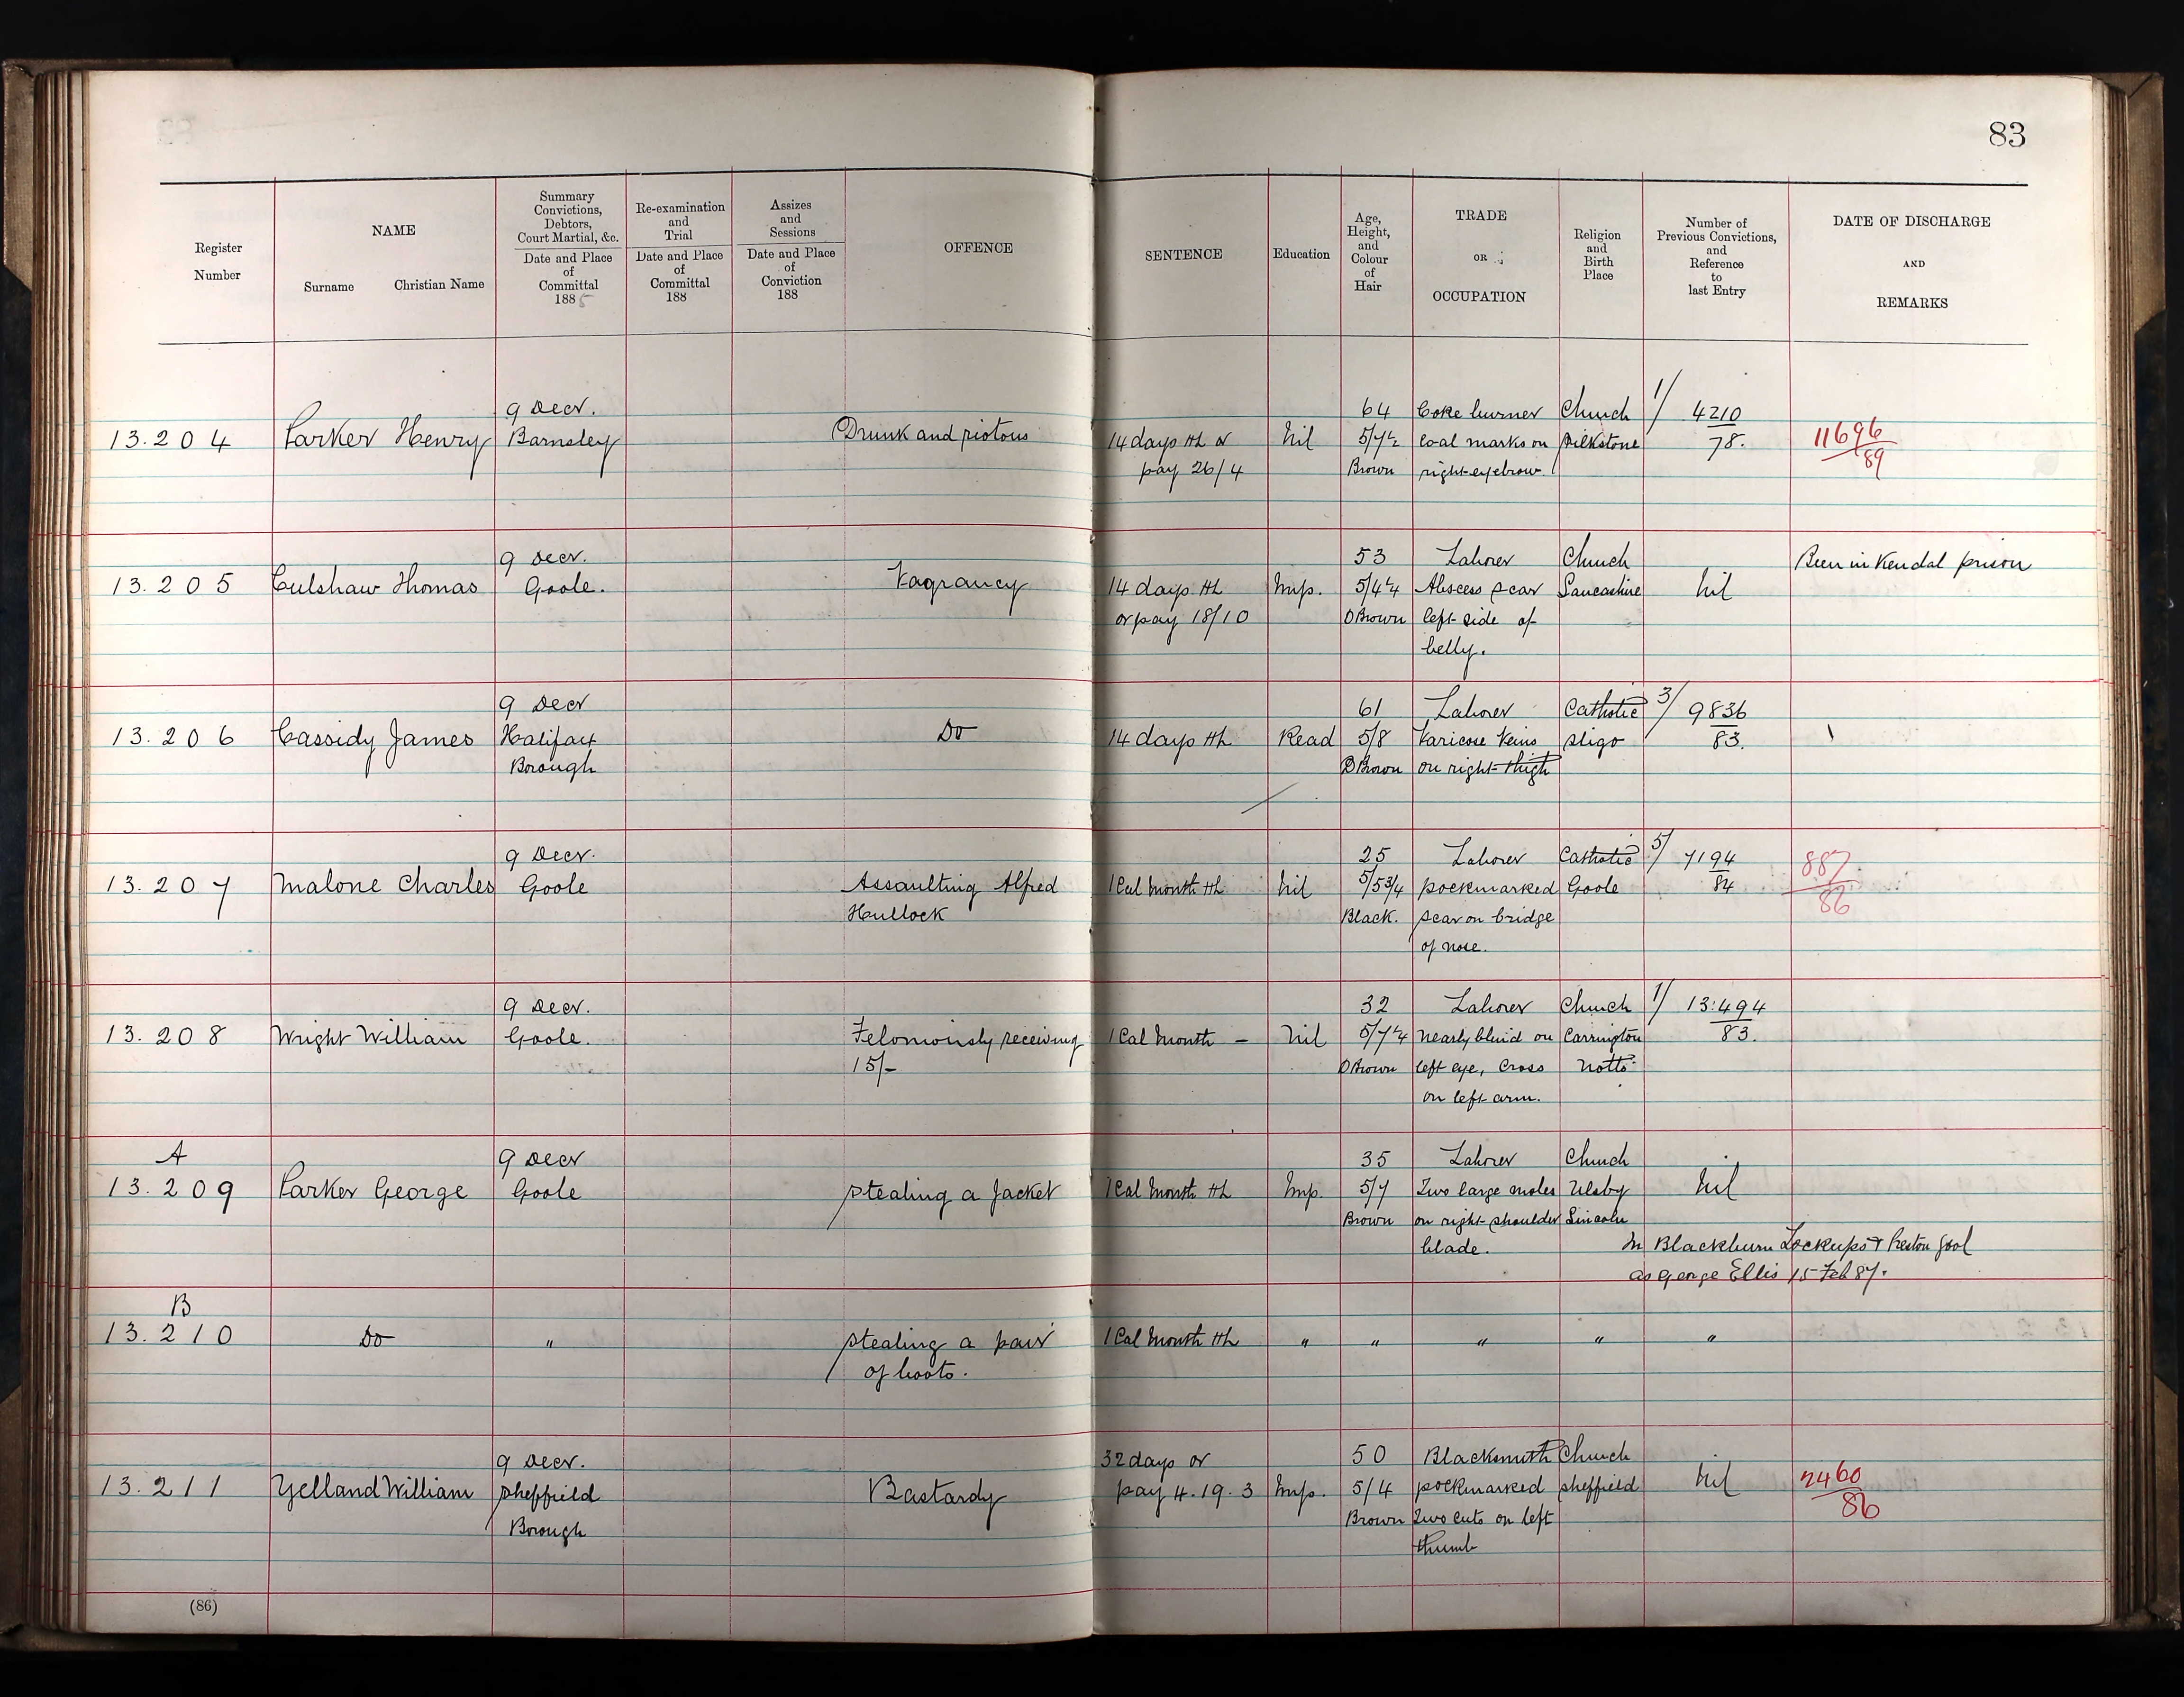 83
Register Number
NAME
Surname Christian Name
Summary Convictions, Debtors, Court Martial, &c.
Date and Place of Committal 1885
Re-examination and Trial
Date and Place of Committal 188
Assizes and Sessions
Date and Place of Conviction 188
OFFENCE
SENTENCE
Education
Age, Height, and Colour of Hair
TRADE OR OCCUPATION
Religion and Birth Place
Number of Previous Convictions, and Reference to last Entry
DATE OF DISCHARGE AND REMARKS
9 Decr. 64 Coke burner Church 1/ 4210
13.204 Parker Henry Barnsley Drunk and riotous 14 days Hl or Nil 5/7½ Coal marks on Silkstone 78. 11696
pay 26/4 Brown right eyebrow. 89
9 Decr. 53 Laborer Church Been in Kendal prison
13.205 Culshaw Thomas Goole. Vagrancy 14 days Hl Imp. 5/4¼ Abscess scar Lancashire Nil
or pay 18/10 D Brown left side of
belly.
9 Decr 61 Laborer Catholic 3/ 9836
13.206 Cassidy James Halifax Do 14 days Hl Read 5/8 Varicose Veins Sligo 83.
Borough D Brown on right thigh
9 Decr. 25 Laborer Catholic 5/ 7194 887
13.207 Malone Charles Goole Assaulting Alfred 1 Cal Month Hl Nil 5/5¾ pockmarked Goole 84 86
Hullock Black. scar on bridge
of nose.
9 Decr. 32 Laborer Church 1/ 13:494
13.208 Wright William Goole. Feloniously receiving 1 Cal Month — Nil 5/7¼ Nearly blind on Carrington 83.
15/- D Brown left eye, Cross Notts
on left arm.
A 9 Decr 35 Laborer Church
13.209 Parker George Goole Stealing a Jacket 1 Cal Month Hl Imp. 5/7 Two large moles Ulsby Nil
Brown on right shoulder Lincoln
blade. In Blackburn Lockups & Preston Gaol
as George Ellis 15 Feb 87.
B
13.210 Do " Stealing a pair 1 Cal Month Hl " " " " "
of boots.
9 Decr. 32 days or 50 Blacksmith Church
13.211 Yelland William Sheffield Bastardy pay 4.19.3 Imp. 5/4 pockmarked Sheffield Nil 2460
Borough Brown Two cuts on left 86
thumb
(86)